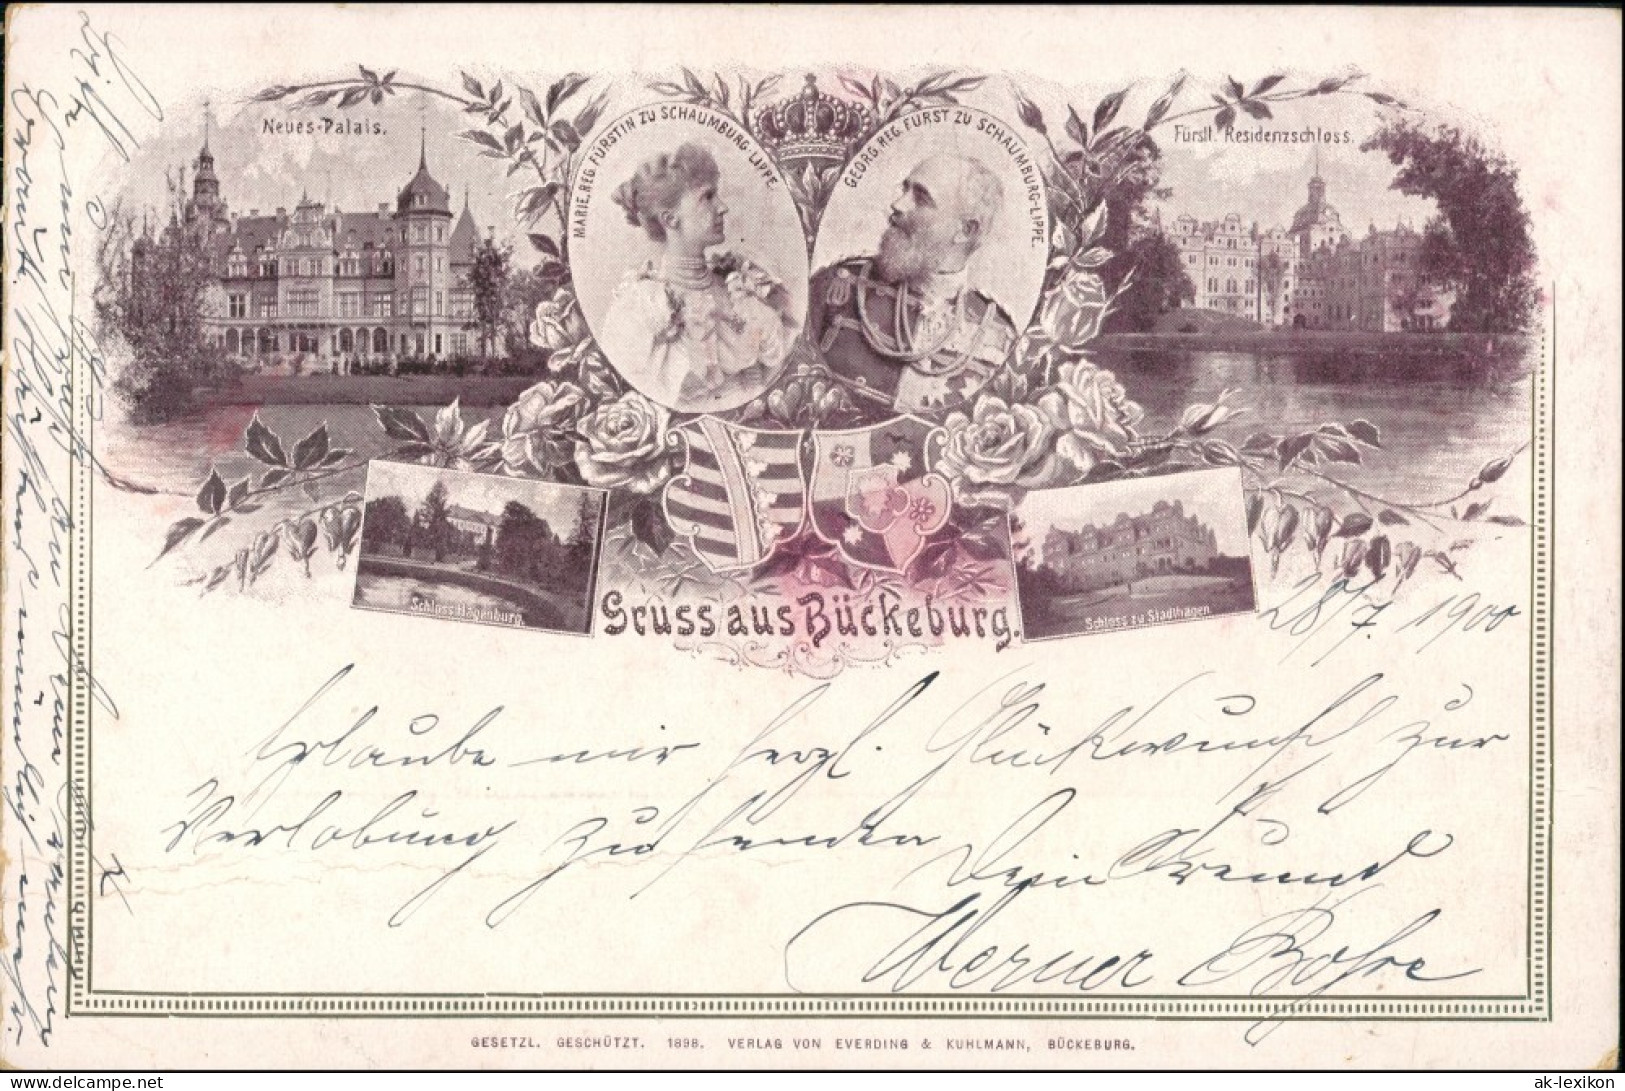 Neues-Palais.
MARIE, REG. FÜRSTIN ZU SCHAUMBURG-LIPPE.
GEORG, REG. FÜRST ZU SCHAUMBURG-LIPPE.
Fürstl. Residenzschloss.
Schloss Hagenburg.
Schloss zu Stadthagen.
Gruss aus Bückeburg.
28/7. 1900
Erlaube mir herzl. Glückwunsch zur
Verlobung zu senden
Dein Freund
Werner Bohre
GESETZL. GESCHÜTZT. 1898. VERLAG VON EVERDING & KUHLMANN, BÜCKEBURG.
www.delcampe.net
ak-lexikon